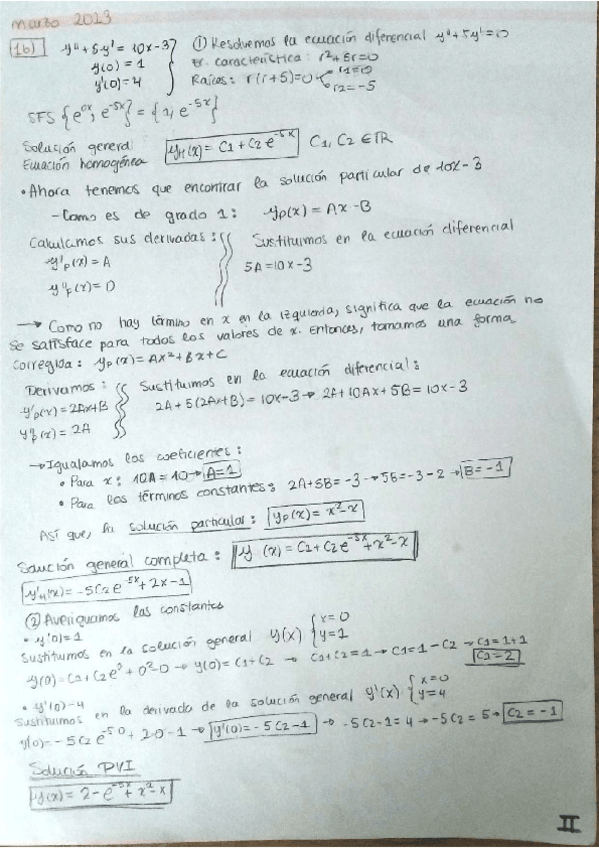 marzo 2023
1b) y'' + 5y' = 10x - 3
y(0) = 1
y'(0) = 4
① Resolvemos la ecuación diferencial y'' + 5y' = 0
Ec. característica: r² + 5r = 0
Raíces: r(r+5) = 0 r1 = 0
r2 = -5
SFS {e^0x, e^-5x} = {1, e^-5x}
Solución general
Ecuación homogénea yH(x) = C1 + C2 e^-5x C1, C2 ∈ ℝ
• Ahora tenemos que encontrar la solución particular de 10x - 3
- Como es de grado 1: yp(x) = Ax - B
Calculamos sus derivadas:
y'p(x) = A
y''p(x) = 0
Sustituimos en la ecuación diferencial
5A = 10x - 3
→ Como no hay término en x en la izquierda, significa que la ecuación no
se satisface para todos los valores de x. Entonces, tomamos una forma
corregida: yp(x) = Ax² + Bx + C
Derivamos:
y'p(x) = 2Ax + B
y''p(x) = 2A
Sustituimos en la ecuación diferencial:
2A + 5(2Ax + B) = 10x - 3 → 2A + 10Ax + 5B = 10x - 3
→ Igualamos los coeficientes:
• Para x: 10A = 10 → A = 1
• Para los términos constantes: 2A + 5B = -3 → 5B = -3 - 2 → B = -1
Así que, la solución particular: yp(x) = x² - x
Solución general completa: y(x) = C1 + C2 e^-5x + x² - x
y'H(x) = -5C2 e^-5x + 2x - 1
② Averiguamos las constantes
• y(0) = 1
Sustituimos en la solución general y(x) { x = 0
y = 1
y(0) = C1 + C2 e^0 + 0² - 0 → y(0) = C1 + C2 → C1 + C2 = 1 → C1 = 1 - C2 → C1 = 1 + 1
C1 = 2
• y'(0) = 4
Sustituimos en la derivada de la solución general y'(x) { x = 0
y = 4
y'(0) = -5C2 e^-5·0 + 2·0 - 1 → y'(0) = -5C2 - 1 → -5C2 - 1 = 4 → -5C2 = 5 → C2 = -1
Solución PVI
y(x) = 2 - e^-5x + x² - x
II